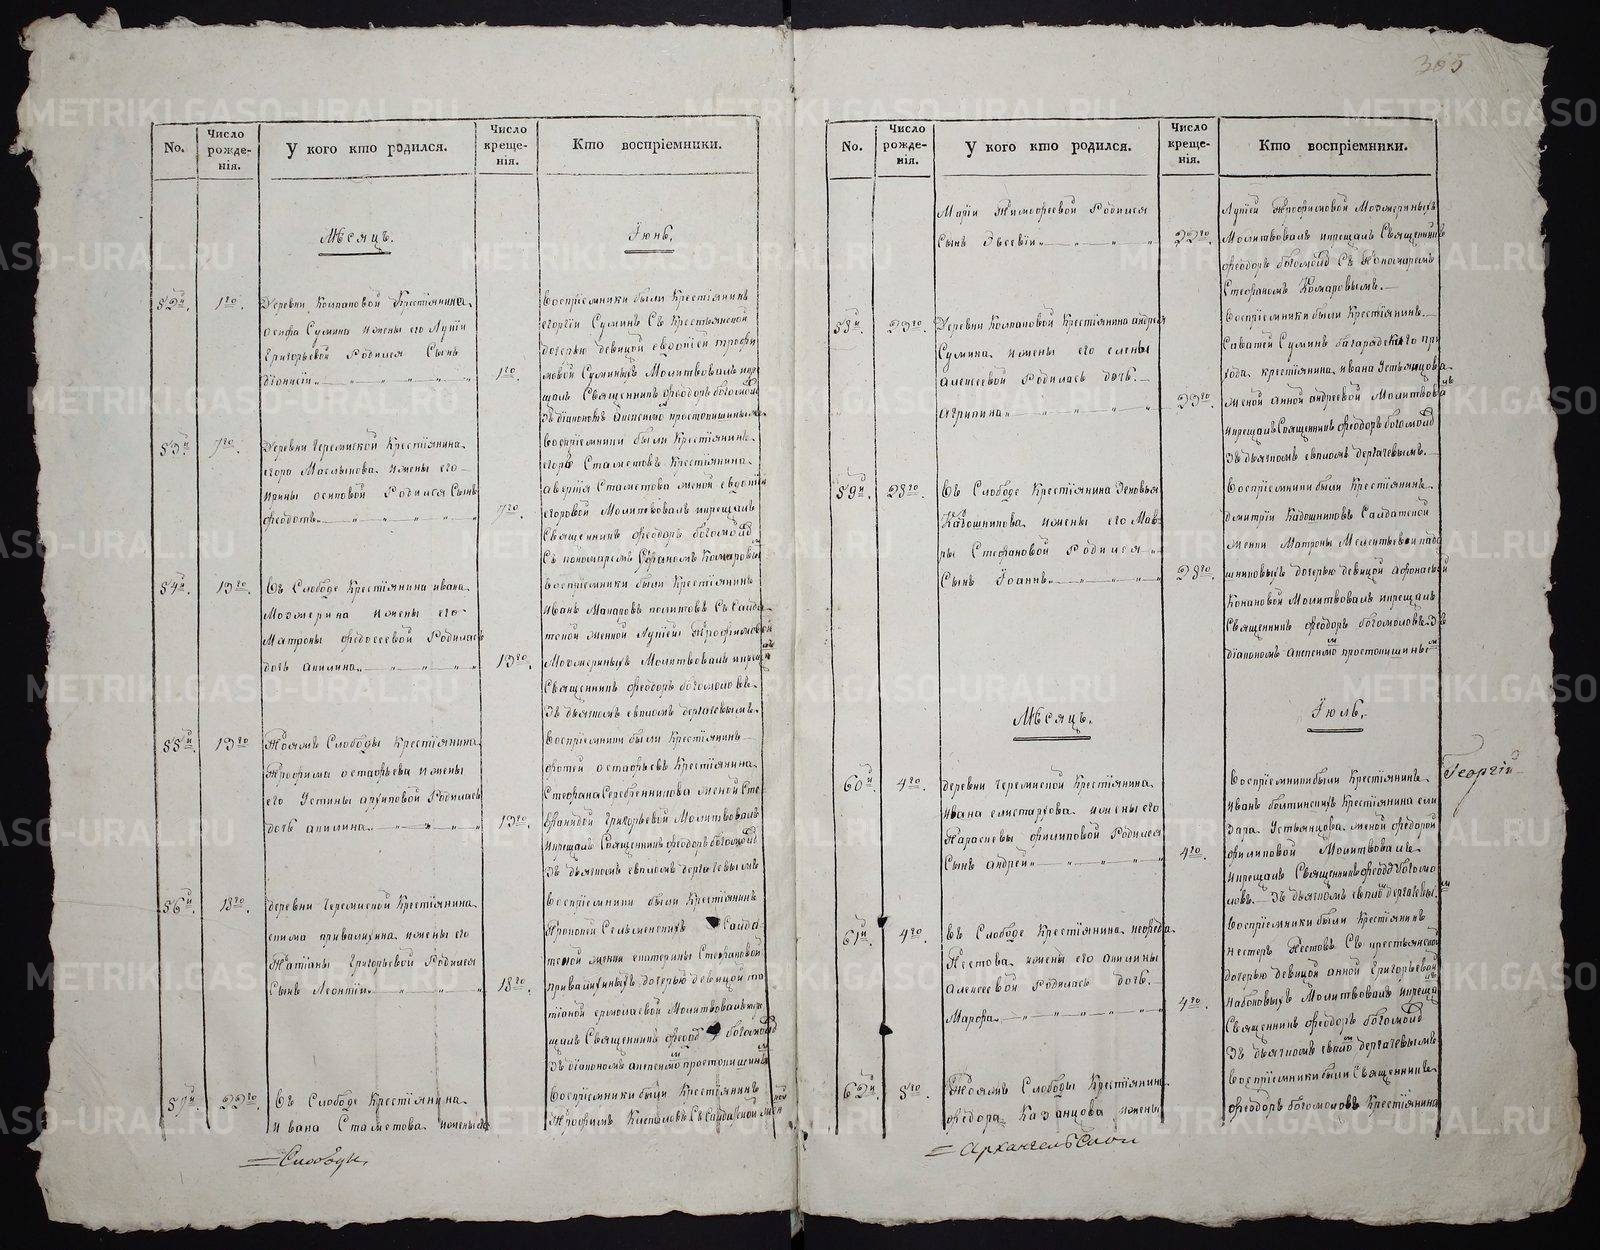 365
No.
Число рожде-нія.
У кого кто родился.
Число креще-нія.
Кто воспріемники.
Мѣсяцъ.
Іюнь.
52й.
1го.
Деревни Колпаковой Крестіянина
осифа Сумина ижены его Лукіи
григорьевой Родился Сынъ
діонисіи
1го.
воспріемники были Крестіянинъ
егоргіи Суминъ Съ Крестьянской
дочерью девицой евдокіей трофи
мовой Суминыхъ Молитвовалъ икре
щалъ Священникъ феодоръ богомолов
Зъ діакономъ алексеемъ простопишины
53й.
7го.
Деревни Черемиской Крестіянина
егора Маслыкова ижены его
ирины осиповой Родился Сынъ
феодотъ
7го.
воспріемники были Крестіянинъ
егоръ Стаметовъ Крестіянина
аверкія Стаметова женой евдокіи
егоровой Молитвовалъ икрещалъ
Священникъ феодоръ богомолов
Съ пономаремъ Стефаномъ Комаровым
54й.
13го.
Въ Слободе Крестіянина ивана
Мозжерина ижены его
Матроны федосеевой Родилась
дочь акилина
13го.
воспріемники были Крестіянинъ
иванъ Макаровъ политовъ Съ Салда
ткой женкой Лукіей Трофимовой
Мозжериныхъ Молитвовалъ икре
Священникъ феодоръ богомоловъ
Зъ дьячкомъ евпломъ дергачевымъ
55й.
13го
Тоямъ Слободы Крестіянина
Трофима остафьева ижены
его Устины архиповой Родилась
дочь акилина
13го.
воспріемники были Крестіянинъ
фотей остафьевъ Крестіянина
Стефана Серебренникова женой Сте
фанидой григорьевой Молитвовалъ
икрещалъ Священникъ феодоръ богомолов
Зъ дьячкомъ евпломъ дергачевымъ
56й.
18го.
деревни Черемиской Крестіянина
екима привалихина ижены его
Татіаны григорьевой Родился
Сынъ Леонтіи
18го.
воспріемники были Крестіянинъ
Прокопей Сельменскихъ Салда
ткой женки екатерины Стефановой
привалихиныхъ дочерью девицой та
тіаной ермолаевой Молитвовалъ икре
щалъ Священникъ феодо богомолов
Зъ діакономъ алексеемъ простопишины
57й.
22го.
Въ Слободе Крестіянина
ивана Стаметова ижены его
воспріемники были Крестіянинъ
Трофимъ Кистоловъ Съ Салдатской жен
Слободы
No.
Число рожде-нія.
У кого кто родился.
Число креще-нія.
Кто воспріемники.
Маріи Тимофеевой Родился
Сынъ Евсевіи
22го.
Лукіей Трофимовой Мозжериныхъ
Молитвовалъ икрещалъ Священникъ
феодоръ богомолов Съ Пономаремъ
Стефаномъ Комаровымъ.
58й.
23го.
Деревни Колпаковой Крестіянина андрея
Сумина ижены его елены
алексеевой Родилась дочь
агрипина
23го.
воспріемники были Крестіянинъ
Саватей Суминъ багарядскаго при
хода крестіянина ивана Устьянцова
женой анной андреевой Молитвова
икрещалъ Священникъ феодоръ богомолов
Зъ дьячкомъ евпломъ дергачевымъ.
59й.
28го.
Въ Слободе Крестіянина Зеновья
Кадошникова ижены его Мав-
ры Стефановой Родился
Сынъ Іоаннъ
28го.
воспріемники были Крестіянинъ
дмитріи Кадошниковъ Салдатской
женки Матроны Мелентьевои кадо
шниковыхъ дочерью девицой афонасьей
Конановой Молитвовалъ икрещалъ
Священникъ феодоръ богомоловъ Зъ
діакономъ алексеемъ простопишины
Мѣсяцъ.
Іюль.
60й.
4го.
деревни Черемиской Крестіянина
ивана елистархова ижены его
Парасковы филиповой Родился
Сынъ андрей
4го.
воспріемники были Крестіянинъ
иванъ болтинскихъ Крестіянина ели
зара Устьянцова женой федорой
филиповой Молитвовалъ
икрещалъ Священникъ феодоръ богомо
ловъ. Зъ дьячкомъ евпломъ дергачевы
Георгій
61й.
4го.
въ Слободе Крестіянина нефеда
Пестова ижены его акилины
алексеевой Родилась дочь
Марфа
4го.
воспріемники были Крестіянинъ
нестеръ Пестовъ Съ крестьянской
дочерью девицой анной григорьевой
набоковыхъ Молитвовалъ икреща
Священникъ феодоръ богомолов
Зъ дьячкомъ евпломъ дергачевымъ
62й.
5го.
Тоямъ Слободы Крестіянина
феодора Казанцова ижены
воспріемники были Священникъ
феодоръ богомоловъ Крестіянина
Архангельской